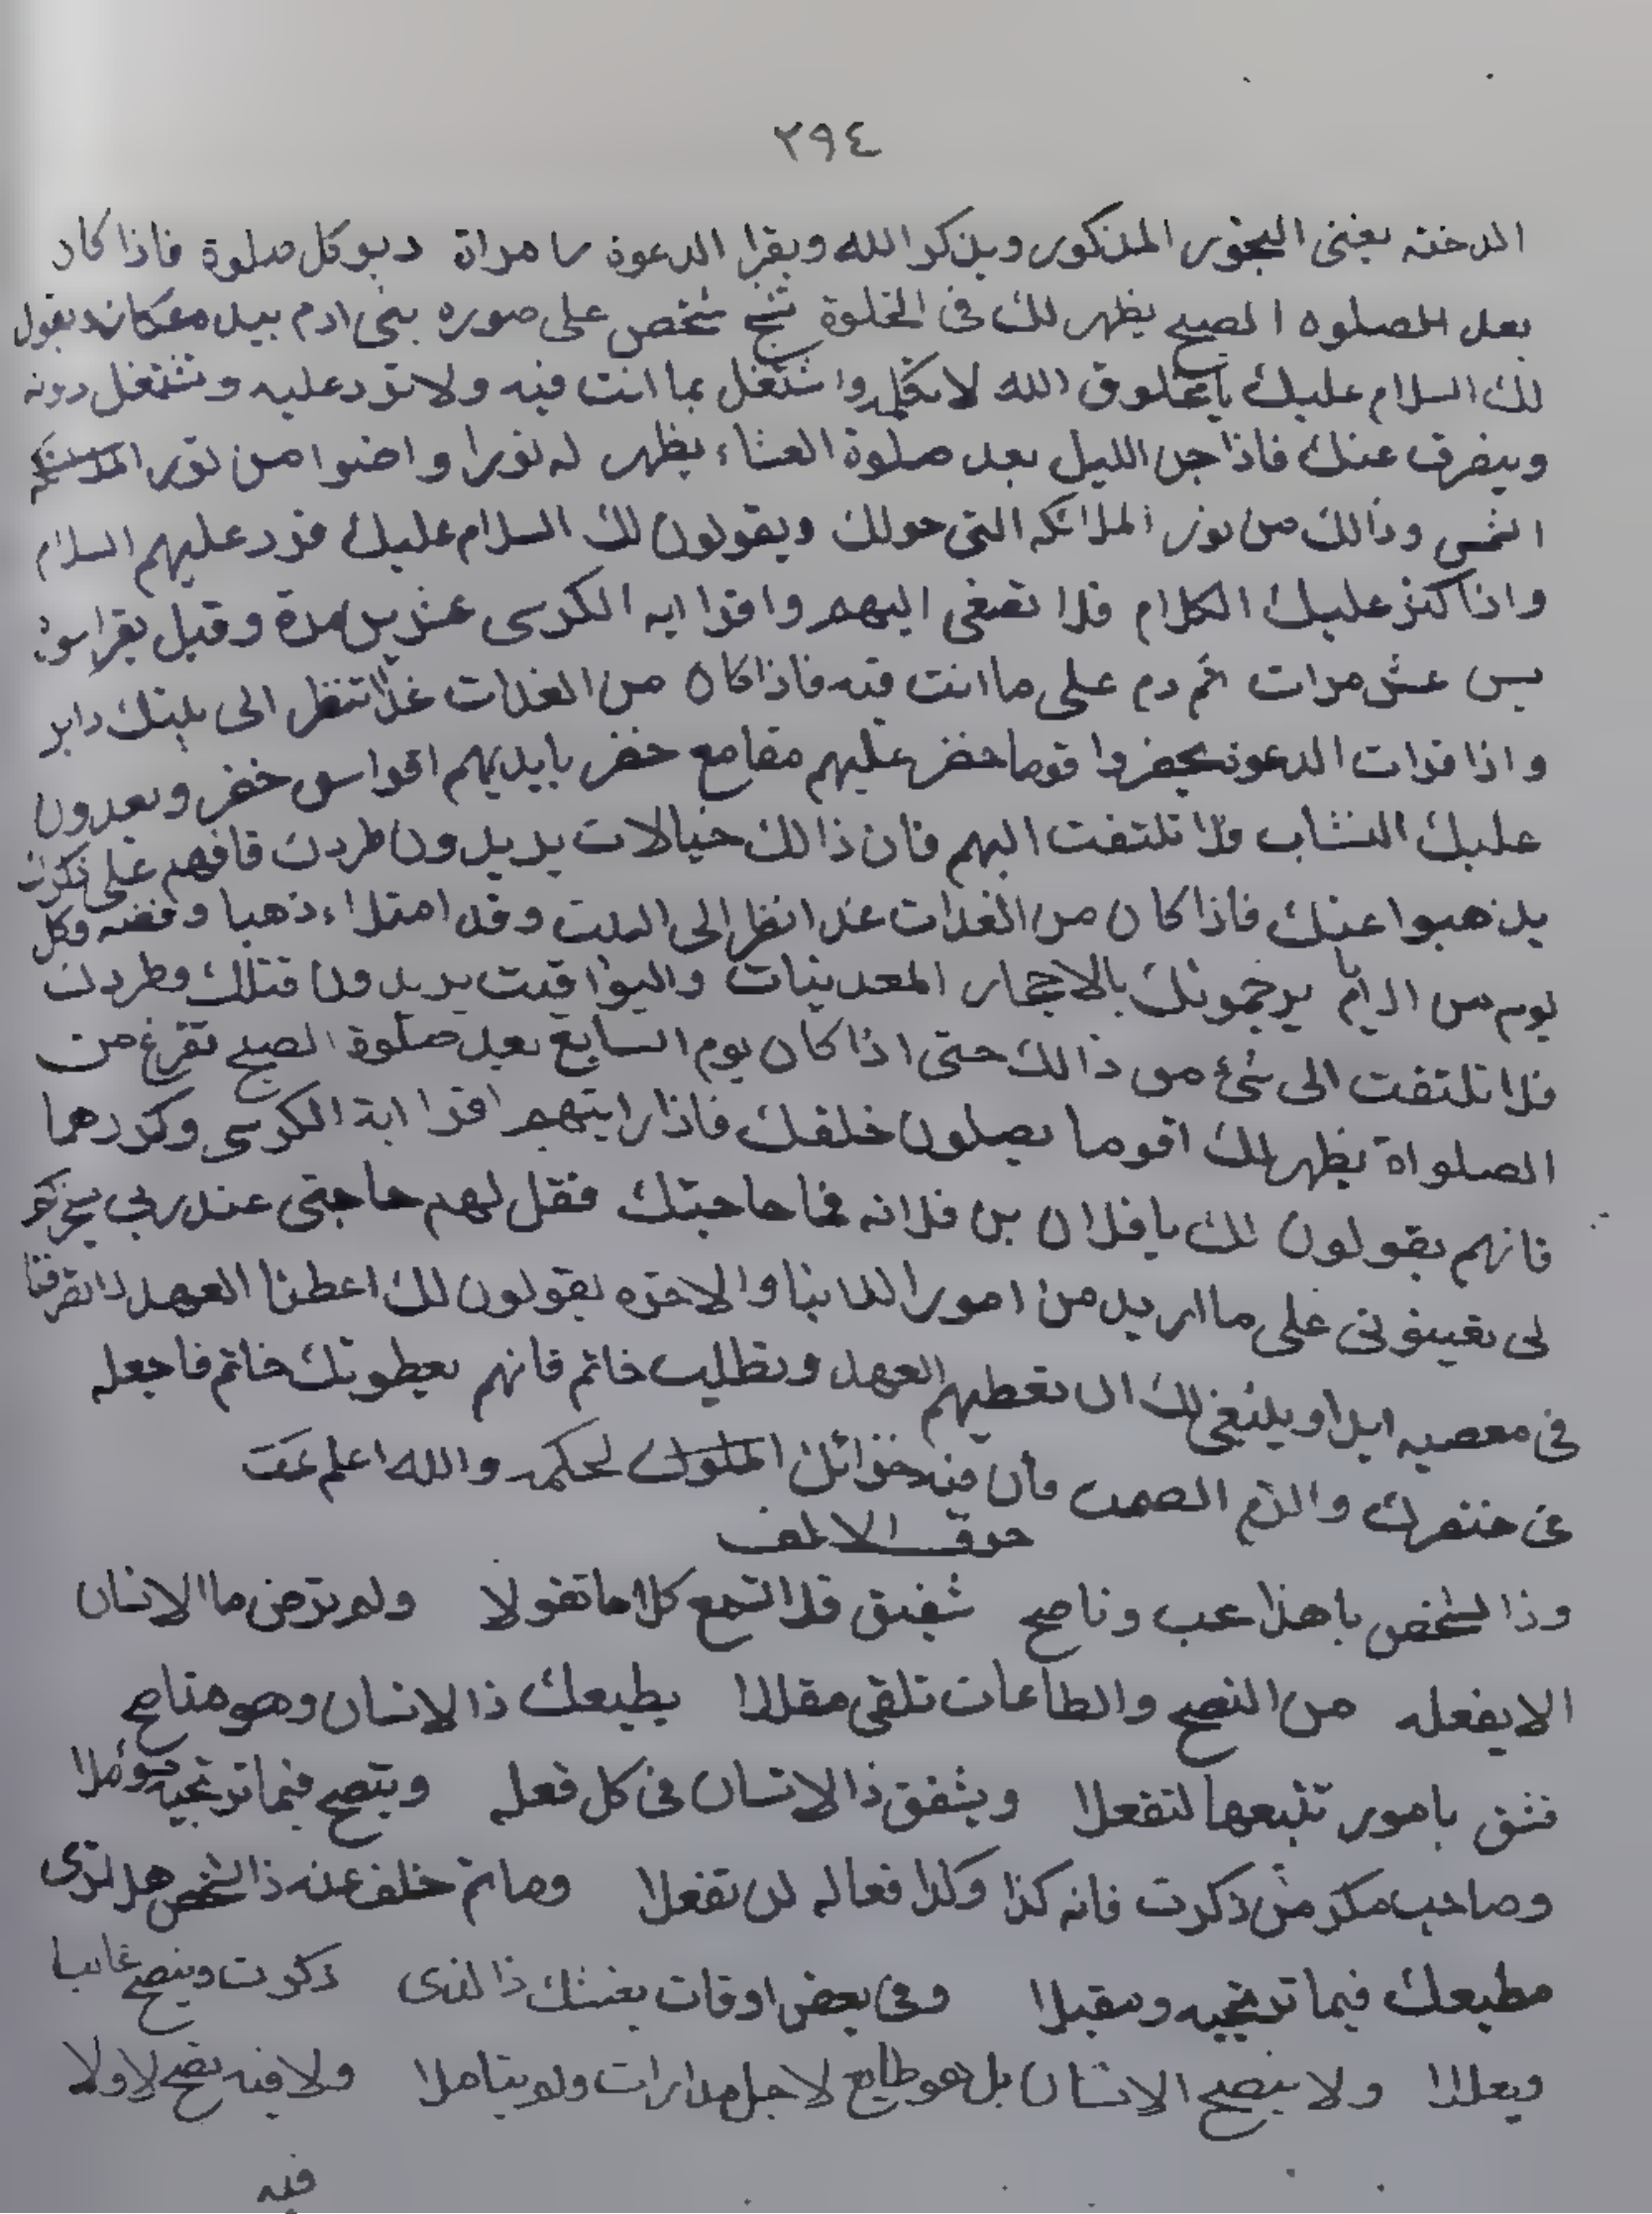 ٢٩٤
الدخنه يعنى البخور المذكور ويذكر الله ويقرا الدعوة مرات دبر كل صلوة فاذا كان
بعد الصلوه الصبح يظهر لك فى الخلوة شخص على صوره بنى ادم بيده ويقول
لك السلام عليك يا مخلوق الله لا تكلمه واشتغل بما انت فيه ولا ترد عليه وتشتغل دونه
وينفرق عنك فاذا جن الليل بعد صلوة العشاء يظهر له نورا واضوا من نور
الشمس وذالك من نور الملائكه التى حولك ويقولون لك السلام عليك فرد عليهم السلام
واذا كثر عليك الكلام فلا تصغى اليهم واقرا ايه الكرسى عشرين مرة وقيل يقرا سورة
يس عشر مرات ثم دم على ما انت فيه فاذا كان من الغدات غدا تنظر الى بيتك داير
واذا قرات الدعوة يحضروا قوما خضر عليهم مقامع خضر بايديهم اقواس خضر ويعدون
عليك النشاب فلا تلتفت اليهم فان ذالك خيالات يريدون طردك فافهم على ذكرك
يذهبوا عنك فاذا كان من الغدات غدا انظر الى البيت وقد امتلاء ذهبا وفضه وكل
يوم من الايام يرجمونك بالاحجار المعدينات واليواقيت يريدون قتلك وطردك
فلا تلتفت الى شئ من ذالك حتى اذا كان يوم السابع بعد صلوة الصبح تفرغ من
الصلواة يظهر لك اقوما يصلون خلفك فاذا رايتهم اقرا اية الكرسى وكررهما
فانهم يقولون لك يا فلان بن فلانه فما حاجتك فقل لهم حاجتى عند ربى
لى تعينونى على ما اريد من امور الدنيا والاخره يقولون لك اعطنا العهد لا تقرفنا
فى معصيه ابدا وينبغى لك ان تعطيهم العهد وتطلب خاتم فانهم يعطونك خاتم فاجعله
فى خنصرك والزم الصمت فان فيه خزائن الملوك لحكمه والله اعلم تمت
حرف الالف
وذا الشخص يا هذا محب وناصح شفيق فلا تسمع كلاما تقولا ولم ترض ما الانسان
الا يفعله من النصح والطاعات تلقى مقللا يطيعك ذا الانسان وهو مناصح
فثق بامور تتبعها لتفعلا ويشفق ذا الانسان فى كل فعله وينصح فيما ترتجيه مؤملا
وصاحب مكر من ذكرت فانه كذا وكذا فعاله لن تفعلا وما تم خلف عنه ذا الشخص هل ترى
مطيعك فيما ترتجيه ومقبلا وفى بعض اوقات يغشك ذا الذى ذكرت وينصح غايبا
ويعللا ولا ينصح الانسان بل هو طايع لاجل مدارات ولم يتاملا ولا فيه نصح لا ولا
فيه